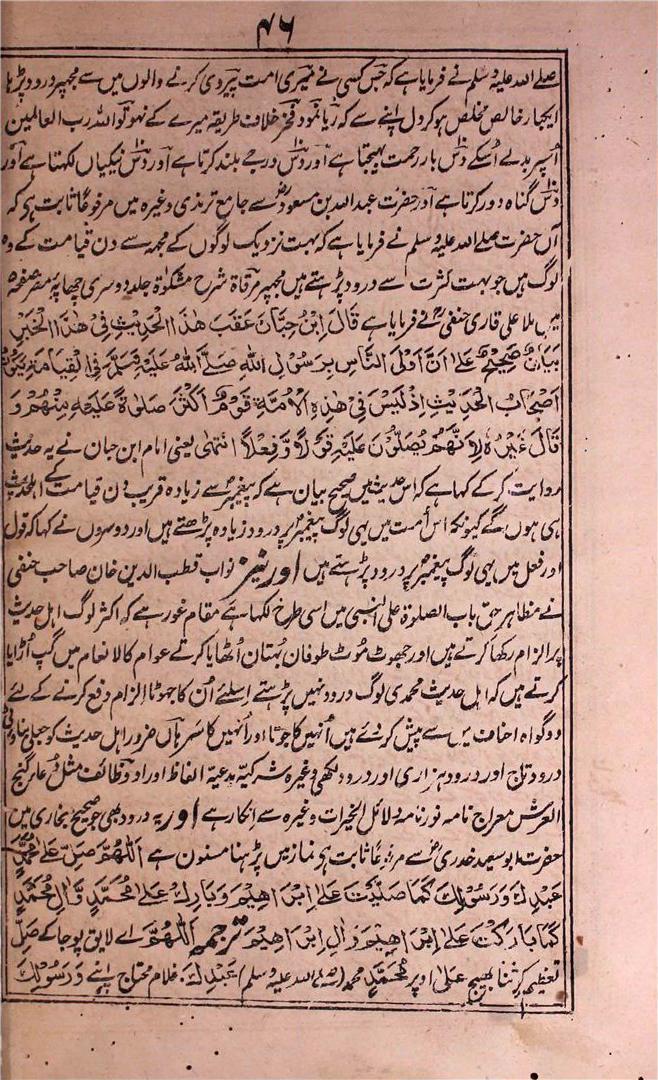 ۴۶
صلے اللہ علیہ وسلم نے فرمایا ہے کہ جس کسی نے میری امت پیروی کرنے والوں میں سے مجھپر درود پڑہا
ایجار خالص مخلص ہو کر دل اپنے سے کہ ریا نمود فخر خلاف طریقہ میرے کے نہو تو اللہ رب العالمین
اُسپر بدلے اُسکے دش بار رحمت بھیجتا ہے اور دش درجے بلند کرتا ہے اور دش نیکیاں لکھتا ہے اور
دش گناہ دور کرتا ہے اور حضرت عبداللہ بن مسعودؓ سے جامع ترمذی وغیرہ میں مرفوعًا ثابت ہی کہ
آں حضرت صلے اللہ علیہ وسلم نے فرمایا ہے کہ بہت نزدیک لوگوں کے مجھہ سے دن قیامت کے وہ
لوگ ہیں جو بہت کثرت سے درود پڑہتے ہیں مجھپر مرقاۃ شرح مشکوٰۃ جلد دوسری چھاپۂ مصر صفحہ
میں ملا علی قاری حنفیؒ نے فرمایا ہے قَالَ ابْنُ حِبَّانَ عَقَبَ هٰذَا الْحَدِيْثِ فِيْ هٰذَا الْخَبَرِ
بَيَانٌ صَحِيْحٌ عَلٰے اَنَّ اَوْلَی النَّاسِ بِرَسُوْلِ اللهِ صَلَّے اللهُ عَلَيْهِ وَسَلَّمَ فِي الْقِيَامَةِ يَكُوْنُ
اَصْحَابُ الْحَدِيْثِ اِذْ لَيْسَ فِيْ هٰذِهِ الْاُمَّةِ قَوْمٌ اَكْثَرَ صَلٰوةً عَلَيْهِ مِنْهُمْ وَ
قَالَ غَيْرُهٗ لِاَنَّهُمْ يُصَلُّوْنَ عَلَيْهِ قَوْلًا وَّفِعْلًا انتہٰی یعنی امام ابن حبان نے یہ حدیث
روایت کر کے کہا ہے کہ اس حدیث میں صحیح بیان ہے کہ پیغمبرؐ سے زیادہ قریب دن قیامت کے اہلحدیث
ہی ہوں گے کیونکہ اس اُمت میں یہی لوگ پیغمبرؐ پر درود زیادہ پڑھتے ہیں اور دوسروں نے کہا کہ قول
اور فعل میں یہی لوگ پیغمبرؐ پر درود پڑہتے ہیں اور نیز نواب قطب الدین خان صاحب حنفی
نے مظاہر حق باب الصلوۃ علی النبی میں اسی طرح لکھا ہے مقام غور ہے کہ اکثر لوگ اہل حدیث
پر الزام رکھا کرتے ہیں اور جھوٹ موٹ طوفان بُہتان اُٹھایا کرتے عوام کالانعام میں گپ اُڑایا
کرتے ہیں کہ اہل حدیث محمدی لوگ درود نہیں پڑہتے اسلئے اُن کا جھوٹا الزام دفع کرنے کے لئے
دو گواہ احناف میں سے پیش کر دئے ہیں اُنہیں کا جوتا اور اُنہیں کا سر ہاں ضرور اہل حدیث کو جعلی بناوٹی
درود تاج اور درود ہزاری اور درود لکھی وغیرہ شرکیہ بدعیہ الفاظ اور اد وظائف مثل دعاء گنج
العرش معراج نامہ نور نامہ دلائل الخیرات وغیرہ سے انکار ہے اور یہ درود بھی جو صحیح بخاری میں
حضرت ابو سعید خدریؓ سے مرفوعًا ثابت ہی نماز میں پڑہنا مسنون ہے اَللّٰهُمَّ صَلِّ عَلٰے مُحَمَّدٍ
عَبْدِكَ وَرَسُوْلِكَ كَمَا صَلَّيْتَ عَلٰے اِبْرَاهِيْمَ وَبَارِكْ عَلٰے مُحَمَّدٍ وَّاٰلِ مُحَمَّدٍ
كَمَا بَارَكْتَ عَلٰے اِبْرَاهِيْمَ وَاٰلِ اِبْرَاهِيْمَ ترجمہ اَللّٰهُمَّ اے لایق پوجا کے صَلِّ
تعظیم کر ثنا بھیج عَلٰی اوپر مُحَمَّدٍ محمد (صلے اللہ علیہ وسلم) عَبْدِكَ غلام محتاج اپنے وَرَسُوْلِكَ